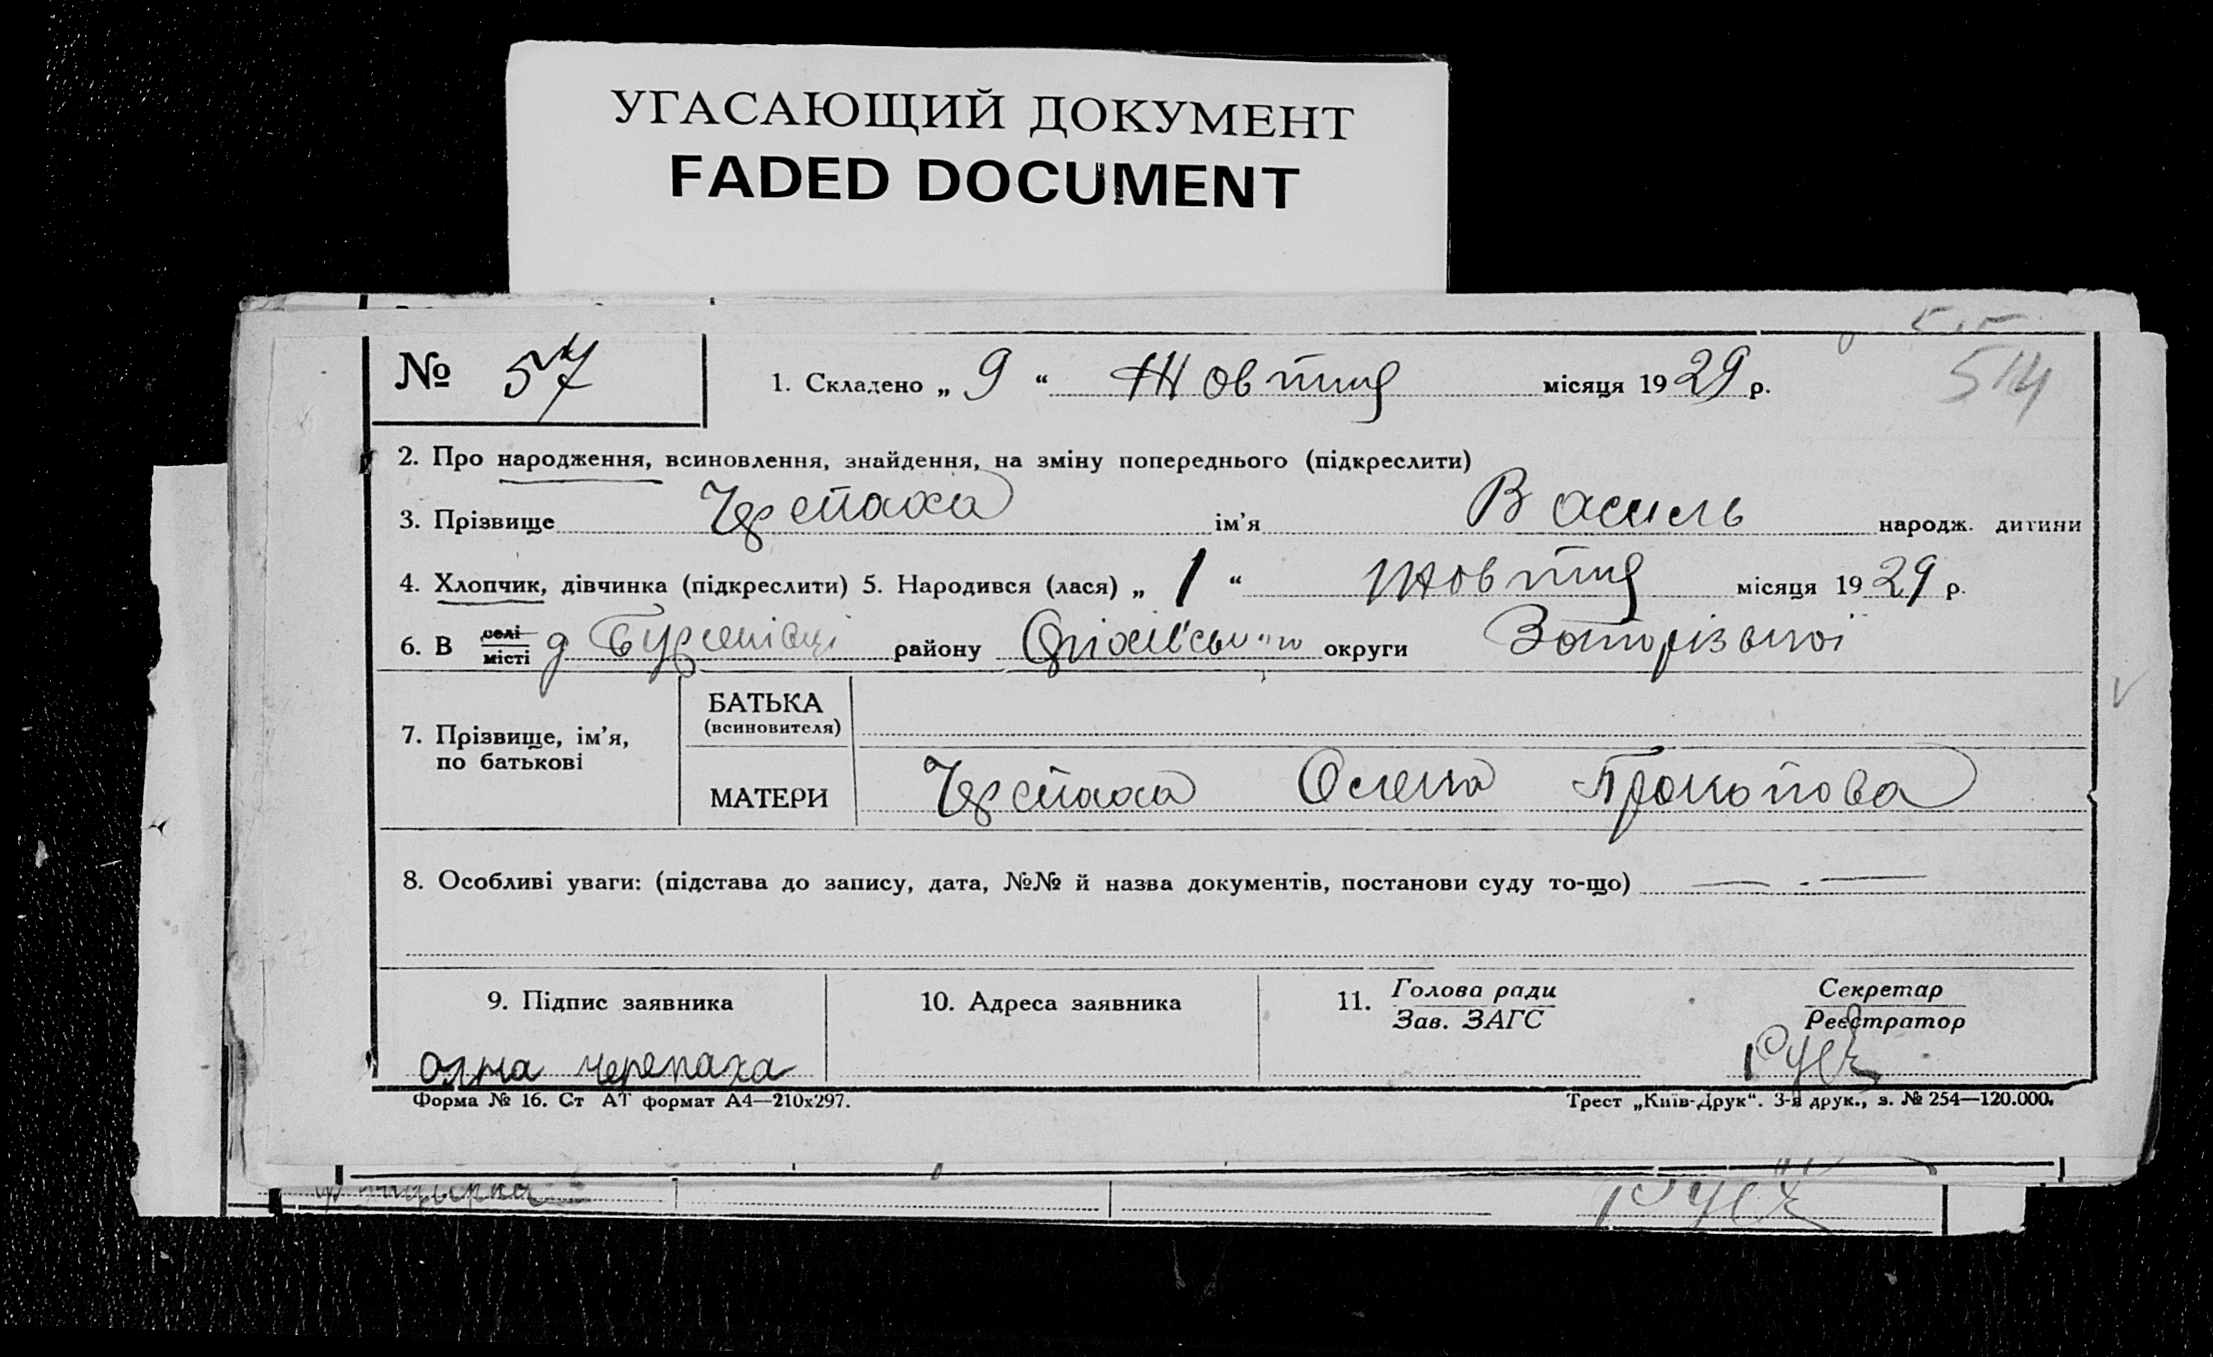 УГАСАЮЩИЙ ДОКУМЕНТ
FADED DOCUMENT
514
№ 57
1. Складено „ 9 “ Жовтня місяця 1929 р.
2. Про народження, всиновлення, знайдення, на зміну попереднього (підкреслити)
3. Прізвище Черепаха ім’я Василь народж. дитини
4. Хлопчик, дівчинка (підкреслити) 5. Народився (лася) „ 1 “ Жовтня місяця 1929 р.
6. В селі місті району округи Запорізької
7. Прізвище, ім’я, по батькові
БАТЬКА (всиновителя)
МАТЕРИ Черепаха Олена Прокопова
8. Особливі уваги: (підстава до запису, дата, №№ й назва документів, постанови суду то-що)
9. Підпис заявника
10. Адреса заявника
11. Голова ради Зав. ЗАГС
Секретар Реєстратор
черепаха
Форма № 16. Ст АТ формат А4—210х297.
Трест „Київ-Друк“. 3-я друк., з. № 254—120.000.